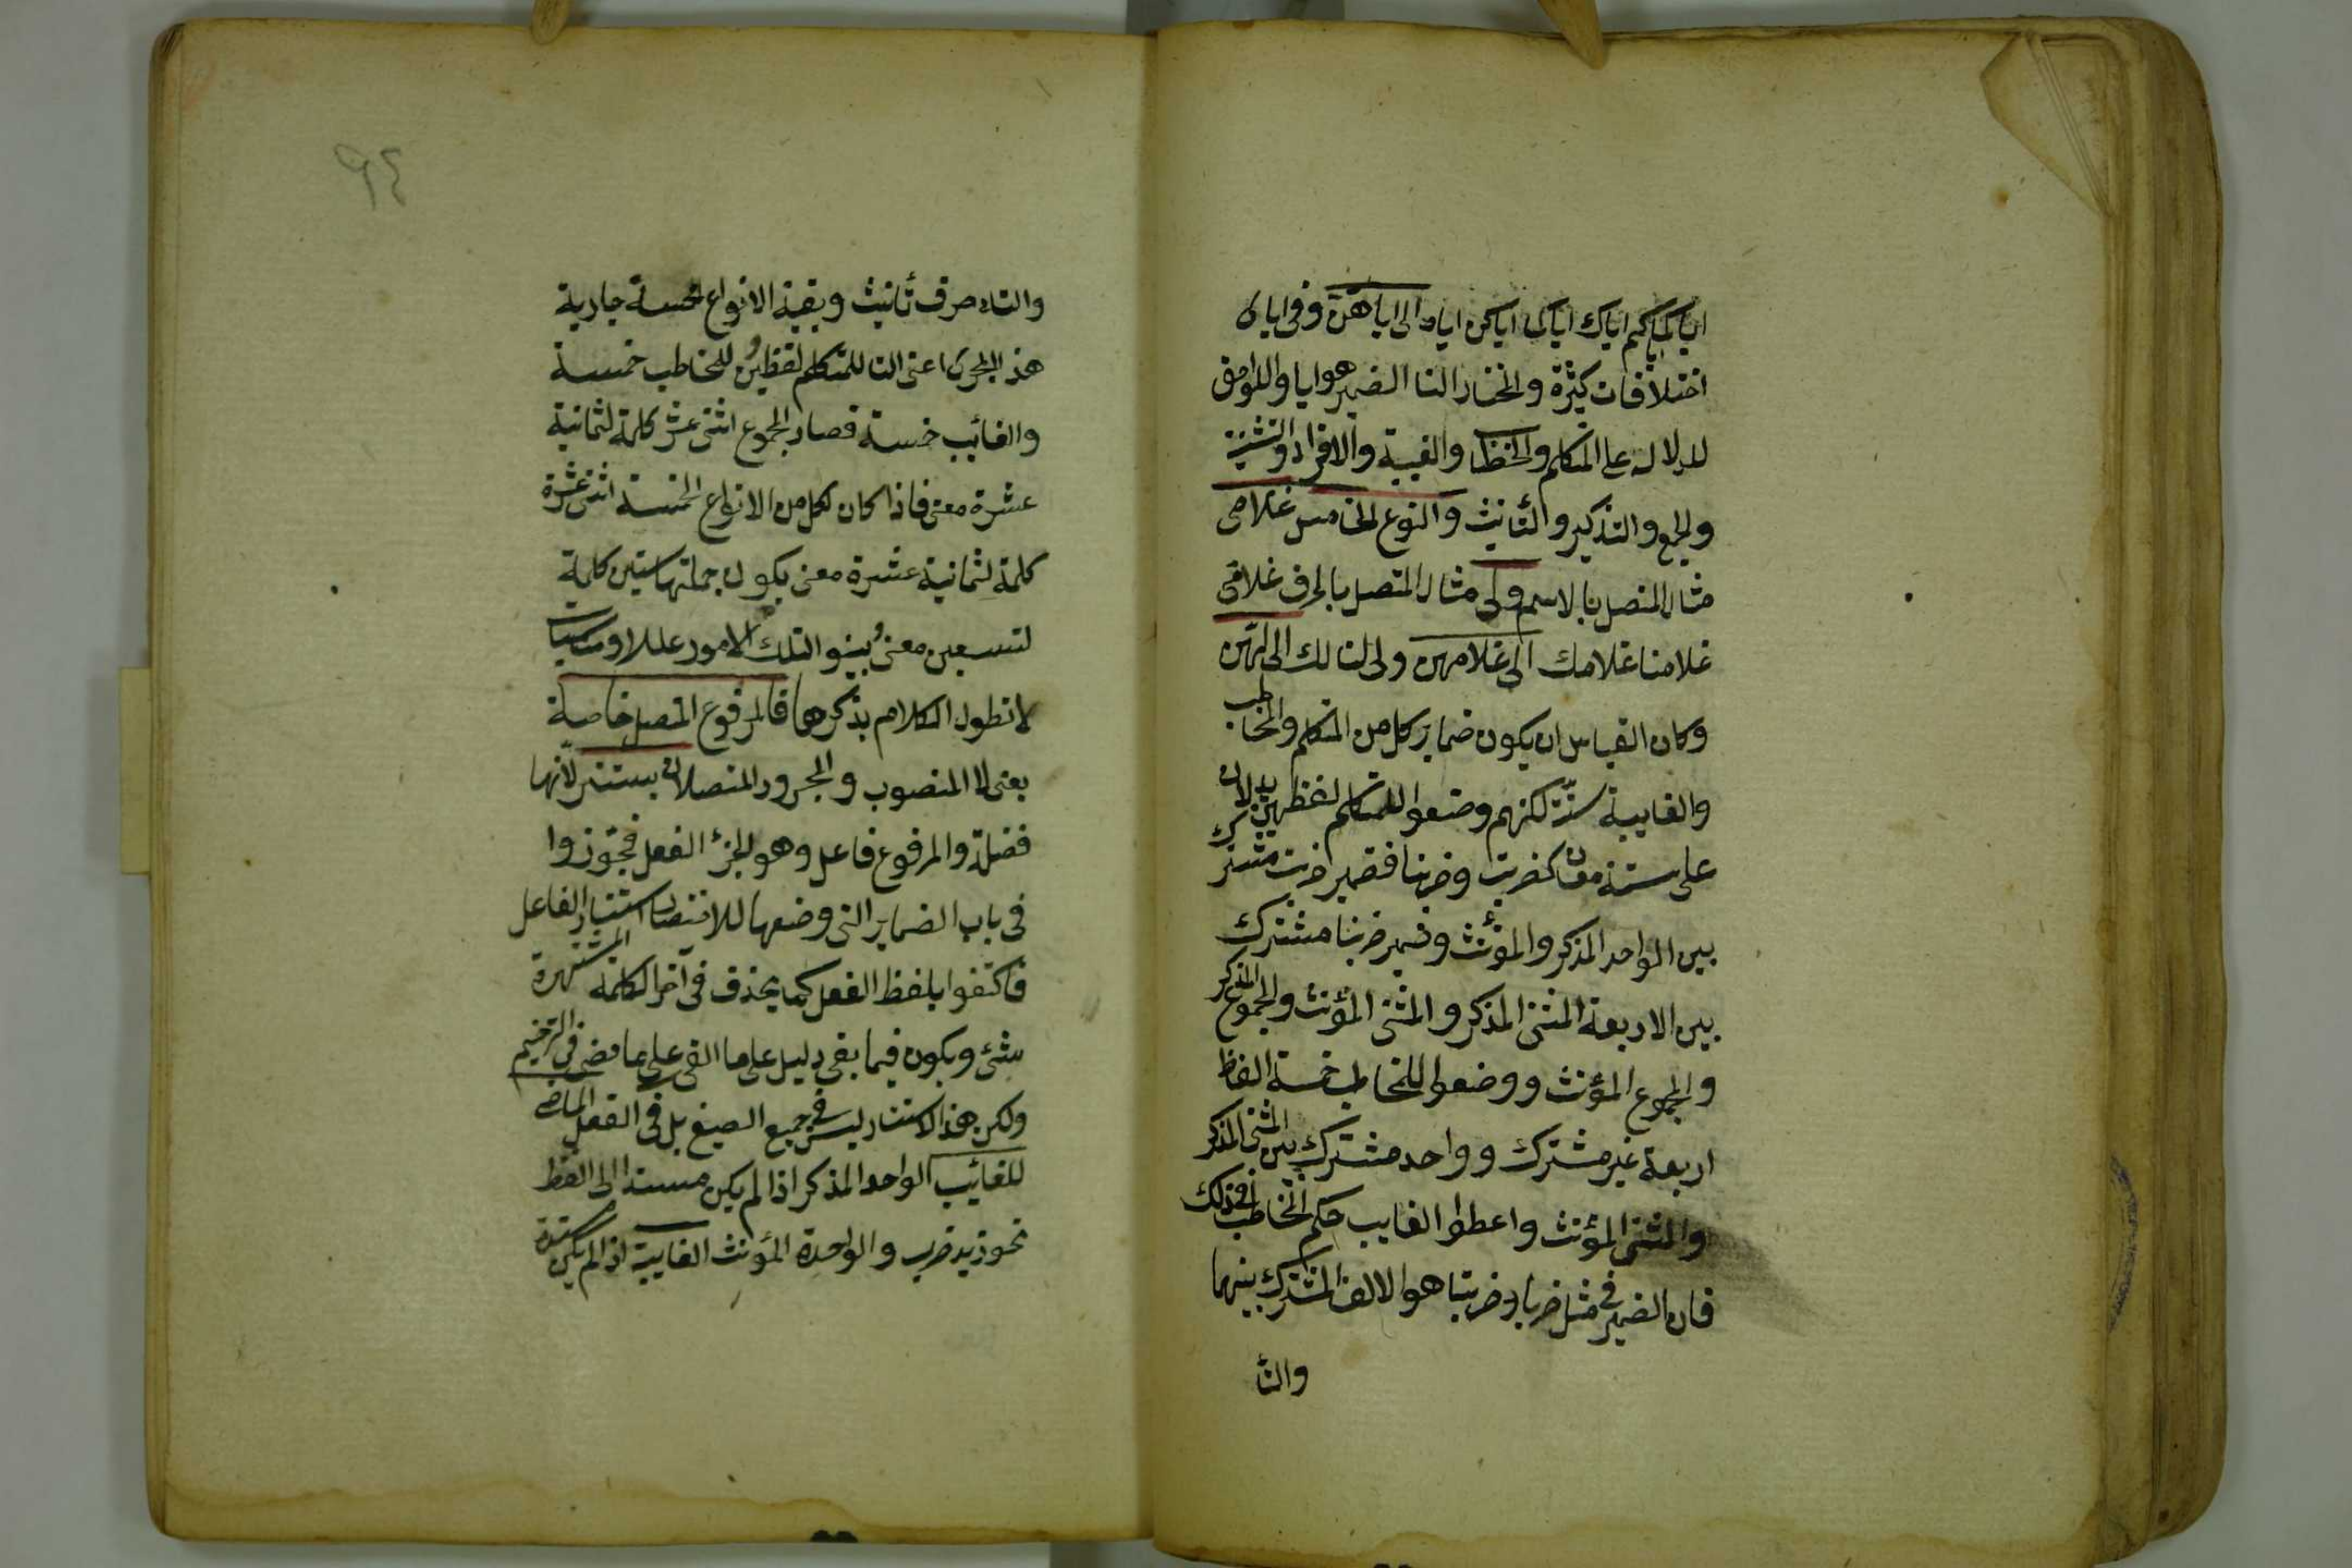 اياكما اياكم اياك اياكما اياكن اياه الى اياهن وفى اياى
اختلافات كثيرة والمختار ان الضمير هو ايا واللواحق
للدلالة على المتكلم والخطاب والغيبة والافراد والتثنية
والجمع والتذكير والتأنيث والنوع الخامس غلامى
مثال المتصل بالاسم ولى مثال المتصل بالحرف غلامى
غلامنا غلامك الى غلامهن ولى لنا لك الى لهن
وكان القياس ان يكون ضماير كل من المتكلم والمخاطب
والغايبة ستة لكنهم وضعوا للمتكلم لفظين يدلان
على ستة معان كضربت وضربنا فضمير ضربت مشترك
بين الواحد المذكر والمؤنث وضمير ضربنا مشترك
بين الاربعة المثنى المذكر والمثنى المؤنث والمجموع المذكر
والمجموع المؤنث ووضعوا للمخاطب خمسة الفاظ
اربعة غير مشترك وواحد مشترك بين المثنى المذكر
والمثنى المؤنث واعطوا الغايب حكم المخاطب فى ذلك
فان الضمير فى مثل ضربا وضربتا هو الالف المشترك بينهما
والتا
٩٤
والتاء حرف تأنيث وبقية الانواع الخمسة جارية
هذا المجرى اعنى للمتكلم لفظين وللمخاطب خمسة
والغائب خمسة فصار المجموع اثنى عشر كلمة لثمانية
عشرة معنى فاذا كان لكل من الانواع الخمسة اثنى عشرة
كلمة لثمانية عشرة معنى يكون جملتها ستين كلمة
لتسعين معنى وبينوا لتلك الامور عللا ومناسبات
لا نطول الكلام بذكرها فالمرفوع المتصل خاصة
يعنى لا المنصوب والمجرور المتصلان يستتر لأنها
فضلة والمرفوع فاعل وهو كجزء الفعل فجوزوا
فى باب الضماير التى وضعها للاختصار استتار الفاعل
فاكتفوا بلفظ الفعل كما يحذف فى آخر الكلمة المشتهرة
شئ ويكون فيما بقى دليل على ما القى على ما مضى فى الترخيم
ولكن هذا الاستتار ليس فى جميع الصيغ بل فى الفعل الماضى
للغائب الواحد المذكر اذا لم يكن مسندا الى الظ
نحو زيد ضرب والواحدة المؤنث الغايبة اذا لم يكن مسندة